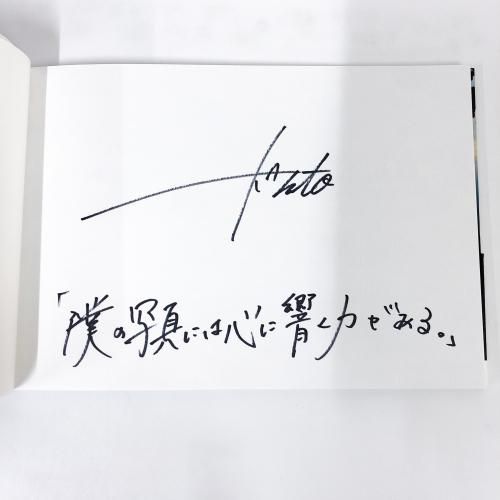 「僕の写真には心に響く力がある。」